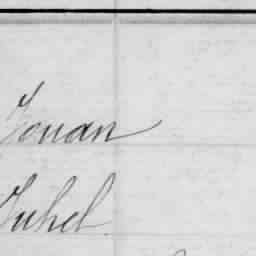 Jouan
Juhel